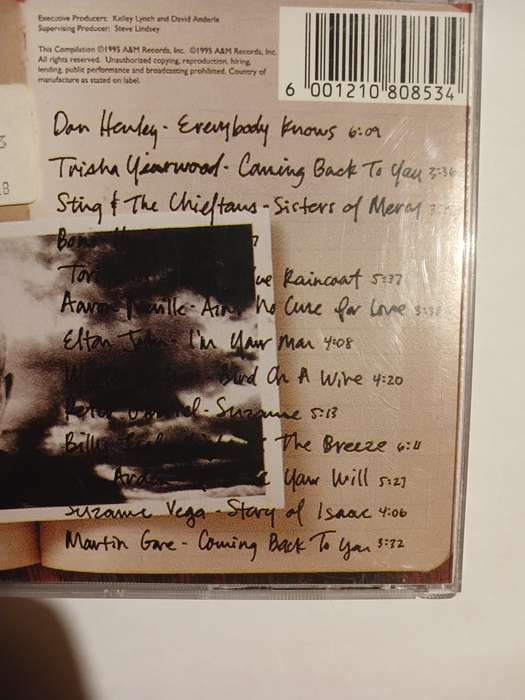 Executive Producers: Kelley Lynch and David Anderle
Supervising Producer: Steve Lindsey
This Compilation ©1995 A&M Records, Inc. ℗1995 A&M Records, Inc.
All rights reserved. Unauthorized copying, reproduction, hiring,
lending, public performance and broadcasting prohibited. Country of
manufacture as stated on label.
6 001210 808534
3
8
Don Henley - Everybody Knows 6:09
Trisha Yearwood - Coming Back To You 3:36
Sting & The Chieftans - Sisters of Mercy
Bono
Tori Raincoat 5:37
Aaron Neville - Ain't No Cure for Love 3:38
Elton John - I'm Your Man 4:08
Bird On A Wire 4:20
Peter - Suzanne 5:13
Billy The Breeze 6:11
Arden Your Will 5:27
Suzanne Vega - Story of Isaac 4:06
Martin Gore - Coming Back To You 3:32